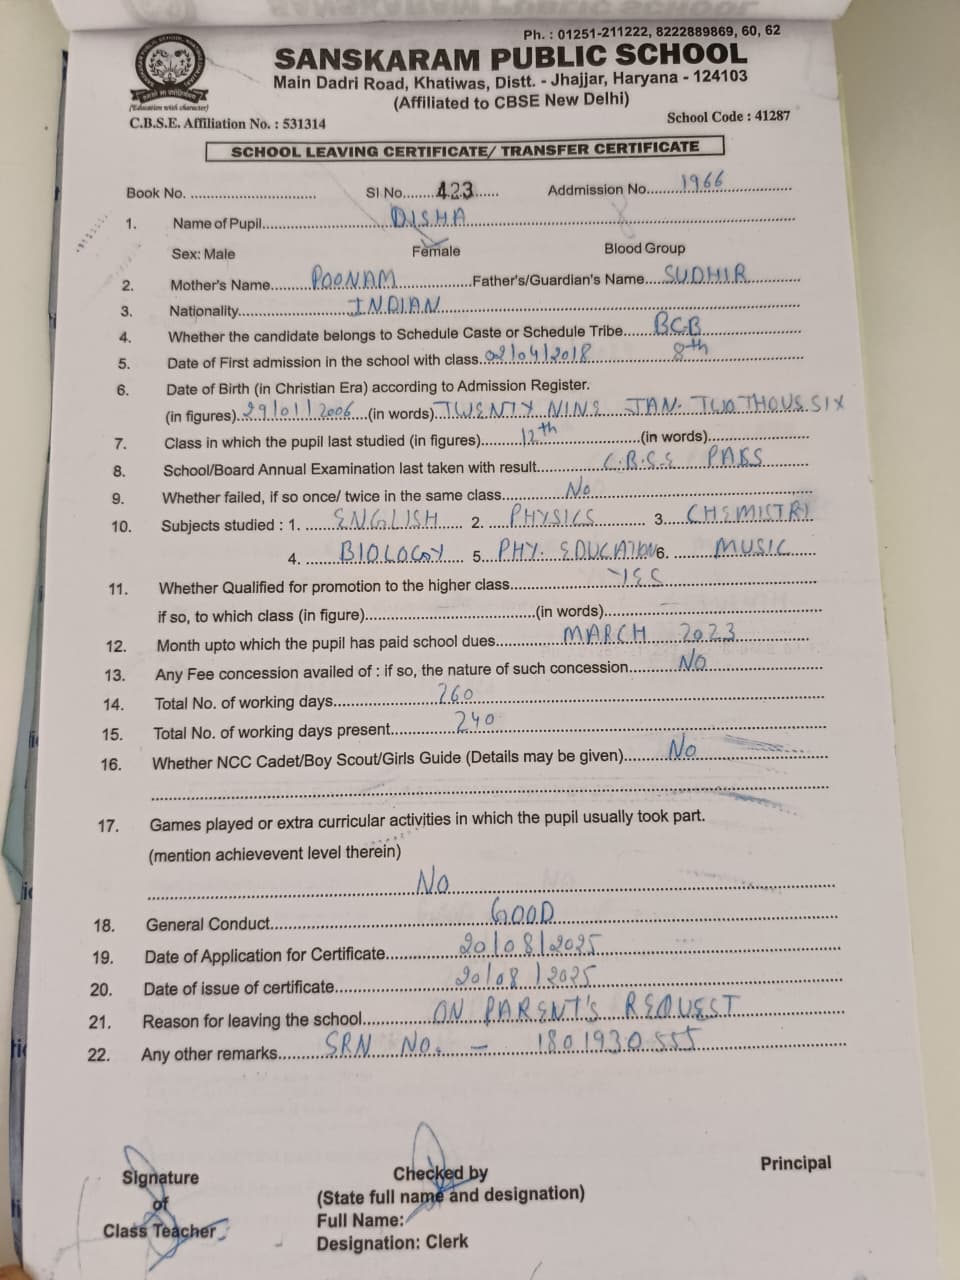 Ph. : 01251-211222, 8222889869, 60, 62
SANSKARAM PUBLIC SCHOOL
Main Dadri Road, Khatiwas, Distt. - Jhajjar, Haryana - 124103
(Affiliated to CBSE New Delhi)
(Education with character)
C.B.S.E. Affiliation No. : 531314
School Code : 41287
SCHOOL LEAVING CERTIFICATE/ TRANSFER CERTIFICATE
Book No. .............. Sl No. 423 Addmission No. 1966
1. Name of Pupil DISHA
Sex: Male Female Blood Group
2. Mother's Name POONAM Father's/Guardian's Name SUDHIR
3. Nationality INDIAN
4. Whether the candidate belongs to Schedule Caste or Schedule Tribe BCB
5. Date of First admission in the school with class 02/04/2018 8th
6. Date of Birth (in Christian Era) according to Admission Register.
(in figures) 29/01/2006 (in words) TWENTY NINE JAN. TWO THOUS. SIX
7. Class in which the pupil last studied (in figures) 12th (in words)
8. School/Board Annual Examination last taken with result C.B.S.E PASS
9. Whether failed, if so once/ twice in the same class No
10. Subjects studied : 1. ENGLISH 2. PHYSICS 3. CHEMISTRY
4. BIOLOGY 5. PHY. EDUCATION 6. MUSIC
11. Whether Qualified for promotion to the higher class YES
if so, to which class (in figure) (in words)
12. Month upto which the pupil has paid school dues MARCH 2023
13. Any Fee concession availed of : if so, the nature of such concession No
14. Total No. of working days 260
15. Total No. of working days present 240
16. Whether NCC Cadet/Boy Scout/Girls Guide (Details may be given) No
17. Games played or extra curricular activities in which the pupil usually took part.
(mention achievevent level therein)
No
18. General Conduct GOOD
19. Date of Application for Certificate 20/08/2025
20. Date of issue of certificate 20/08/2025
21. Reason for leaving the school ON PARENT'S REQUEST
22. Any other remarks SRN No. - 1801930555
Signature
of
Class Teacher
Checked by
(State full name and designation)
Full Name:
Designation: Clerk
Principal